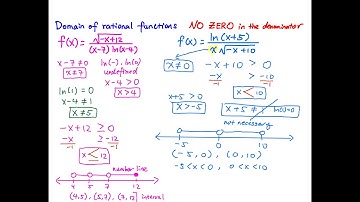 Domain of rational functions NO ZERO in the denominator
f(x) = √(-x+12) / ((x-7) ln(x-4))
x-7 ≠ 0
x ≠ 7
ln(-), ln(0)
undefined
x-4 > 0
x > 4
ln(1) = 0
x-4 ≠ 1
x ≠ 5
-x+12 ≥ 0
-x/-1 ≥ -12/-1
x ≤ 12
number line
4 5 7 12
(4,5), (5,7), (7,12] interval
f(x) = ln(x+5) / (x √(-x+10))
x ≠ 0
-x+10 > 0
-x/-1 > -10/-1
x < 10
x+5 > 0
x > -5
x+5 ≠ 1
ln(1)=0
not necessary
-5 0 10
(-5, 0), (0, 10)
-5<x<0, 0<x<10